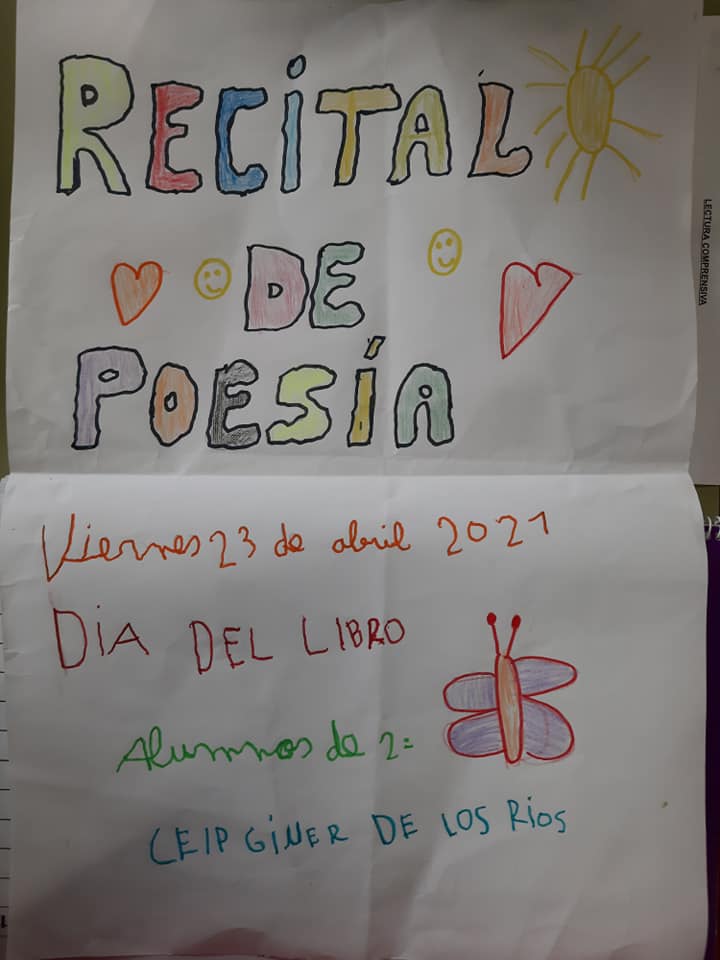 RECITAL
DE
POESÍA
Viernes 23 de abril 2021
DiA DEL LIBRO
Alumnos de 2º
CEIP GiNER DE LOS Rios
LECTURA COMPRENSIVA